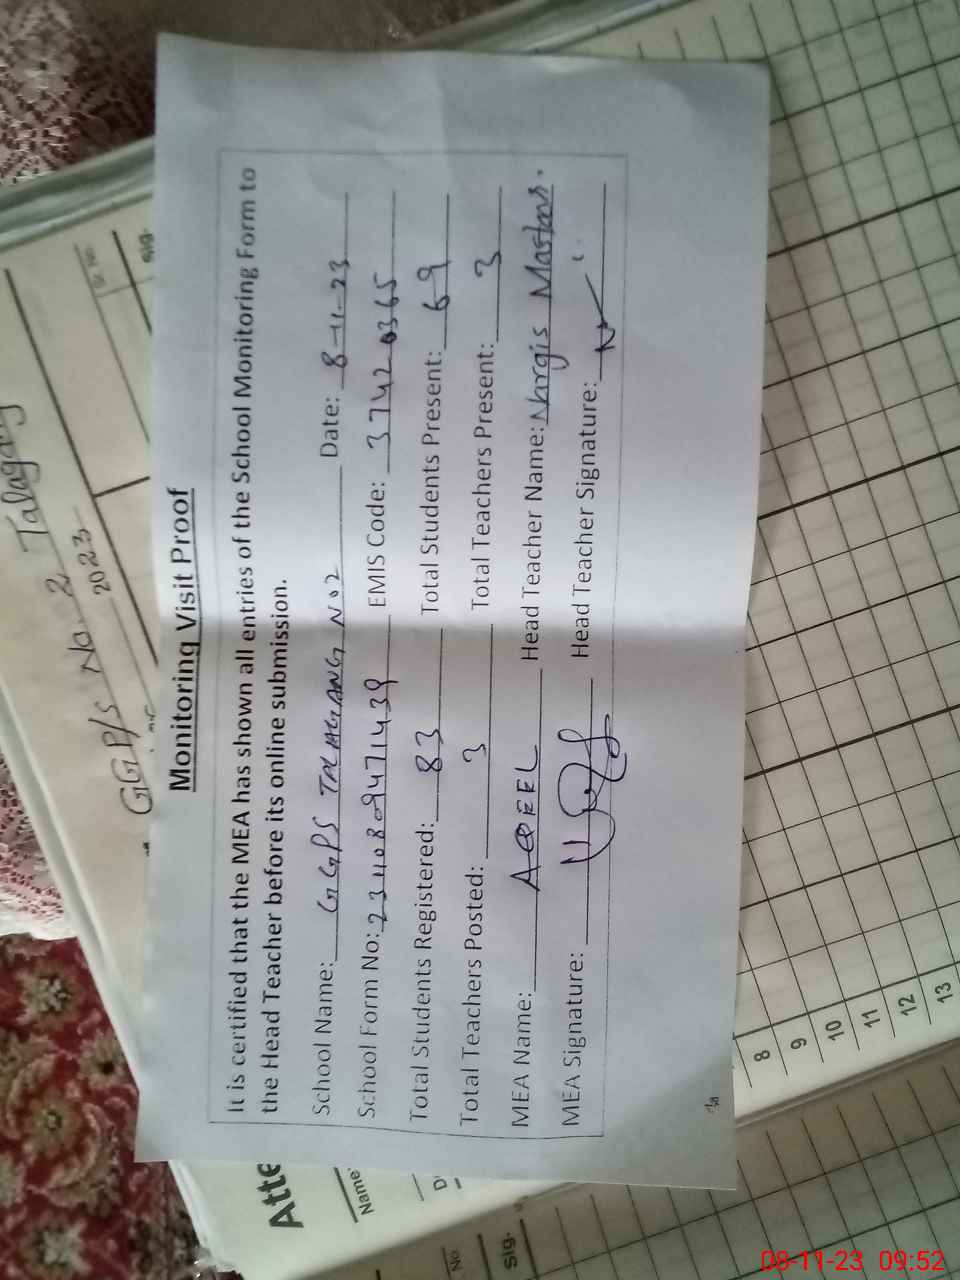 GGP/S No. 2 Talagang
2023
Sr. No.
Sig.
Monitoring Visit Proof
It is certified that the MEA has shown all entries of the School Monitoring Form to
the Head Teacher before its online submission.
School Name: GGPS TALAGANG No 2 Date: 8-11-23
School Form No: EMIS Code: 37420365
Total Students Registered: 83 Total Students Present: 69
Total Teachers Posted: 3 Total Teachers Present: 3
MEA Name: AQEEL Head Teacher Name: Nargis
MEA Signature: Head Teacher Signature:
Atte
Name:
D
No
Sig.
8
9
10
11
12
13
08-11-23 09:52